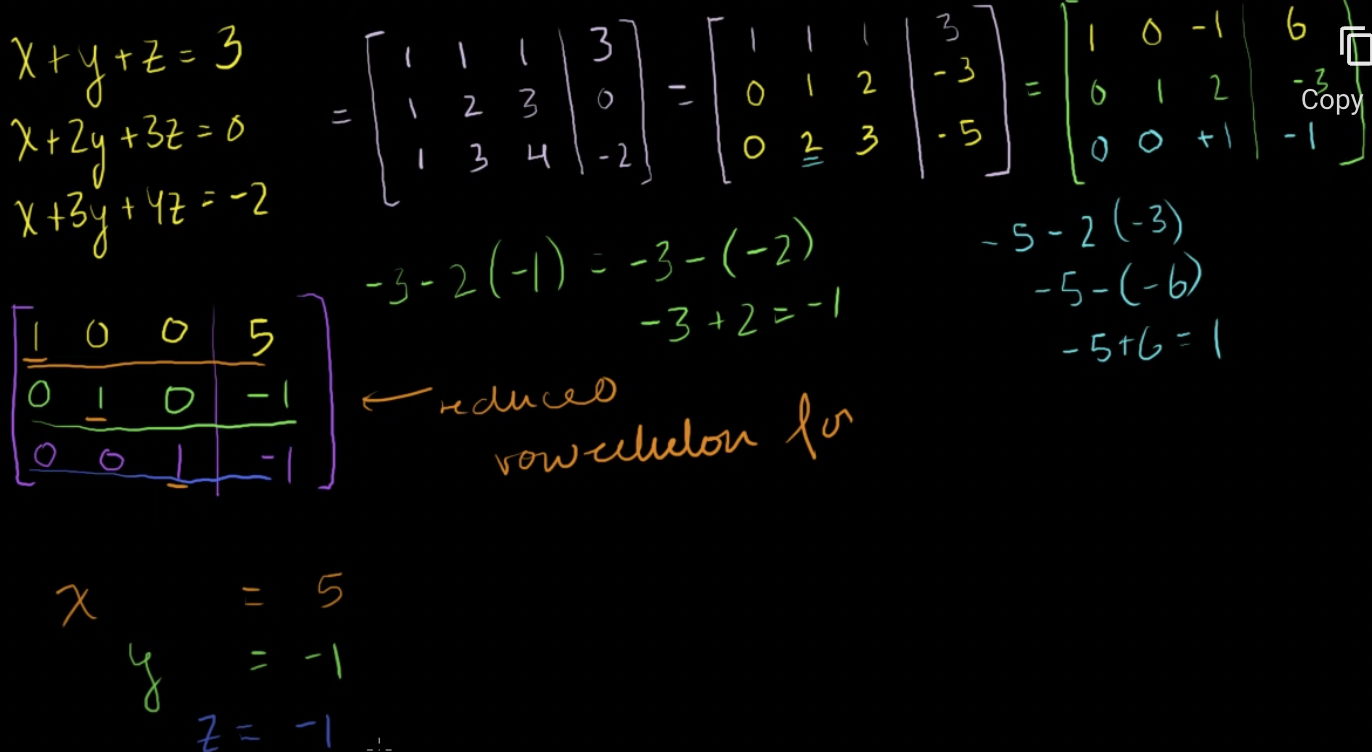 x+y+z=3
x+2y+3z=0
x+3y+4z=-2
= [ 1 1 1 | 3
1 2 3 | 0
1 3 4 | -2 ]
= [ 1 1 1 | 3
0 1 2 | -3
0 2 3 | -5 ]
= [ 1 0 -1 | 6
0 1 2 | -3
0 0 +1 | -1 ]
Copy
-3-2(-1) = -3-(-2)
-3+2=-1
-5-2(-3)
-5-(-6)
-5+6=1
[ 1 0 0 | 5
0 1 0 | -1
0 0 1 | -1 ]
← reduced
x = 5
y = -1
z = -1